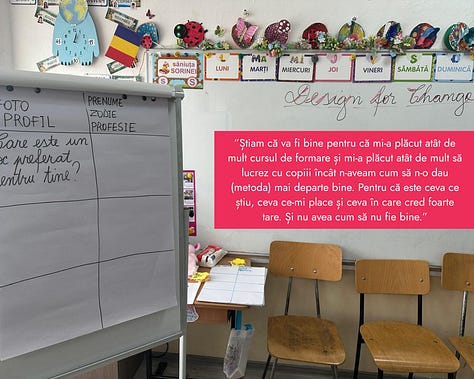 săniuța
SORINEI
S
LUNI
MARȚI
MIERCURI
JOI
VINERI
SÂMBĂTĂ
DUMINICĂ
Design for Change
FOTO
PROFIL
PRENUME
ZODIE
PROFESIE
Care este un
loc preferat
pentru tine?
“Știam că va fi bine pentru că mi-a plăcut atât de
mult cursul de formare și mi-a plăcut atât de mult să
lucrez cu copiii încât n-aveam cum să n-o dau
(metoda) mai departe bine. Pentru că este ceva ce
știu, ceva ce-mi place și ceva în care cred foarte
tare. Și nu avea cum să nu fie bine.”